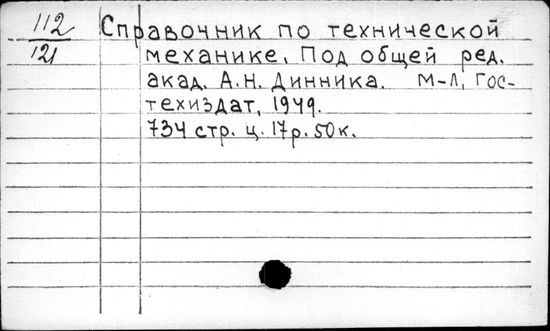 112
121
Справочник по технической
механике. Под общей ред.
акад. А.Н. Динника. М-Л, Гос-
техиздат, 1949.
734 стр. ц. 17р. 50к.